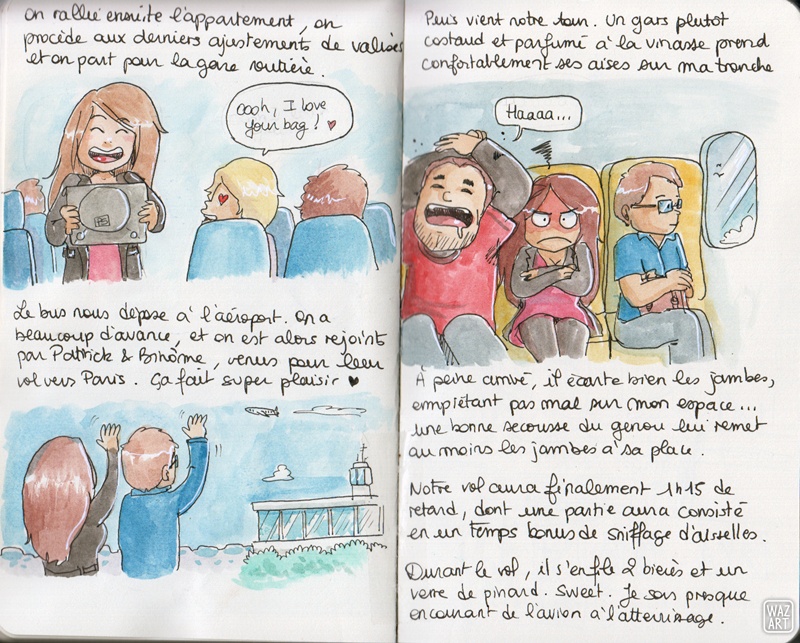 On rallie ensuite l'appartement, on
procède aux derniers ajustements de valises
et on part pour la gare routière.
Oooh, I love
your bag! ♥
Le bus nous dépose à l'aéroport. On a
beaucoup d'avance, et on est alors rejoints
par Patrick & venus pour leur
vol vers Paris. Ça fait super plaisir ♥
Puis vient notre tour. Un gars plutôt
costaud et parfumé à la vinasse prend
confortablement ses aises sur ma tronche
Haaaa...
À peine arrivé, il écarte bien les jambes,
empiétant pas mal sur mon espace...
une bonne secousse du genou lui remet
au moins les jambes à sa place.
Notre vol aura finalement 1h15 de
retard, dont une partie aura consisté
en un temps bonus de sniffage d'aisselles.
Durant le vol, il s'enfile 2 bières et un
verre de pinard. Sweet. Je sors presque
en courant de l'avion à l'atterrissage.
WAZ
ART